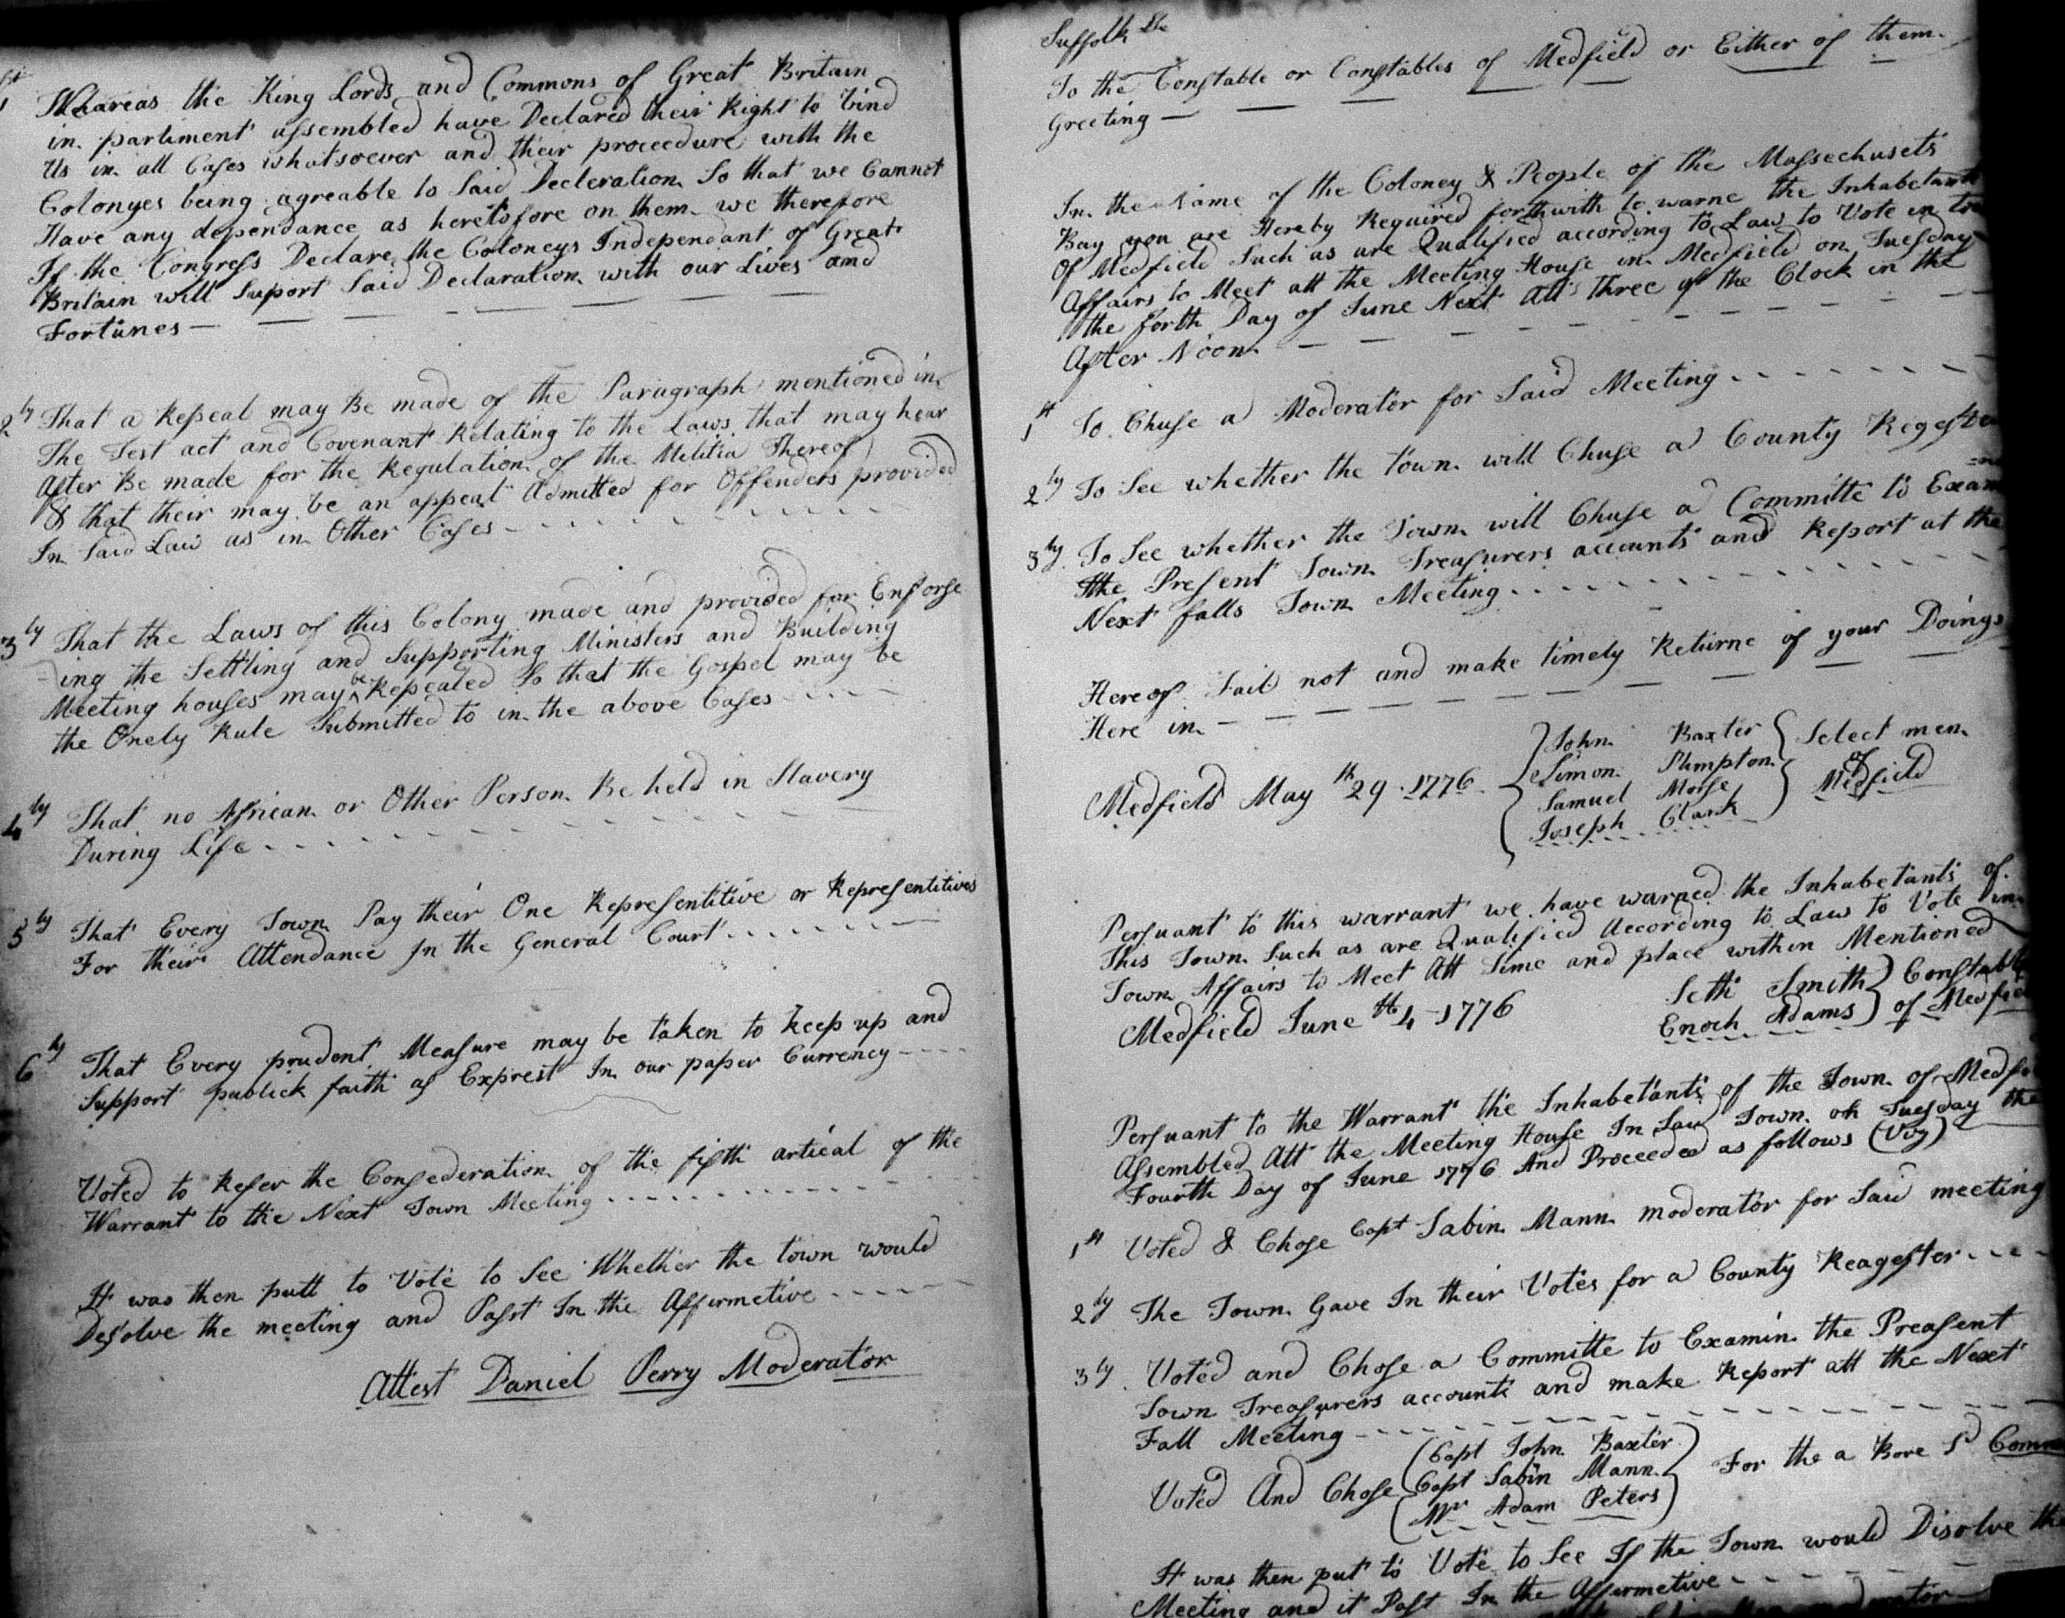 1st Whareas the King Lords and Commons of Great Britain
in parliment assembled have Declared their Right to bind
Us in all Cases whatsoever and their proceedure with the
Colonyes being agreable to Said Decleration So that we Cannot
Have any dependance as heretofore on them we therefore
If the Congress Declare the Coloneys Independant of Great
Britain will Suport Said Declaration with our Lives and
Fortunes
2ly That a Repeal may Be made of the Paragraph mentioned in
The Test act and Covenant Relating to the Laws that may hear
After Be made for the Regulation of the Militia Thereof
& that their may be an appeal Admitted for Offenders provided
In Said Law as in Other Cases
3ly That the Laws of this Colony made and provided for Enforse
=ing the Settling and Supporting Ministers and Building
Meeting houses may be Repealed So that the Gospel may be
the Onely Rule Submitted to in the above Cases
4ly That no African or Other Person Be held in Slavery
During Life
5ly That Every Town Pay their One Representitive or Representitives
For their Attendance In the General Court
6ly That Every prudent Measure may be taken to keep up and
Support publick faith as Exprest In our paper Currency
Voted to Refer the Consederation of the fifth artical of the
Warrant to the Next Town Meeting
It was then putt to Vote to See Whether the town would
Desolve the meeting and Past In the Affirmetive
Attest Daniel Perry Moderator
Suffolk Ss
To the Constable or Constables of Medfield or Either of them
Greeting
In the Name of the Coloney & People of the Massechusets
Bay you are Hereby Required forthwith to warne the Inhabetants
Of Medfield Such as are Qualified according to Law to Vote in
Affairs to Meet att the Meeting House in Medfield on Tuesday
the forth Day of June Next Att three of the Clock in the
After Noon
1st To Chuse a Moderator for Said Meeting
2ly To See whether the town will Chuse a County
3ly To See whether the Town will Chuse a Committe to
the Present Town Treasurers accounts and Report at the
Next falls Town Meeting
Hereof Fail not and make timely Returne of your Doings
Here in
Medfield May th 29 1776 John Baxter Select men
Simon Plimpton of
Samuel Morse Medfield
Joseph Clark
Persuant to this warrant we have warned the Inhabetants of
This Town Such as are Qualified According to Law to Vote in
Town Affairs to Meet Att Time and place within Mentioned
Medfield June th 4 1776 Seth Smith
Enoch Adams of
Persuant to the Warrant the Inhabetants of the Town of
Assembled Att the Meeting House In Said Town on Tuesday the
Fourth Day of June 1776 And Proceeded as follows (Viz)
1st Voted & Chose Capt Sabin Mann moderator for Said meeting
2ly The Town Gave In their Votes for a County Reagester
3ly Voted and Chose a Committe to Examin the Preasent
Town Treasurers accounts and make Report att the Next
Fall Meeting
Capt John Baxter
Voted And Chose Capt Sabin Mann For the a Bore Sd
Mr Adam Peters
It was then put to Vote to See If the Town would Disolve the
Meeting and it Past In the Affirmetive